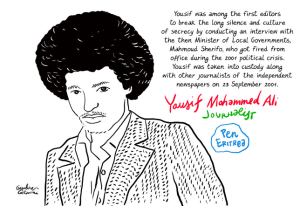 Yousif was among the first editors
to break the long silence and culture
of secrecy by conducting an interview with
the then Minister of Local Governments,
Mahmoud Sherifo, who got fired from
office during the 2001 political crisis.
Yousif was taken into custody along
with other journalists of the independent
newspapers on 23 September 2001.
Yousif Mohammed Ali
JOURNALIST
Pen
ERITREA